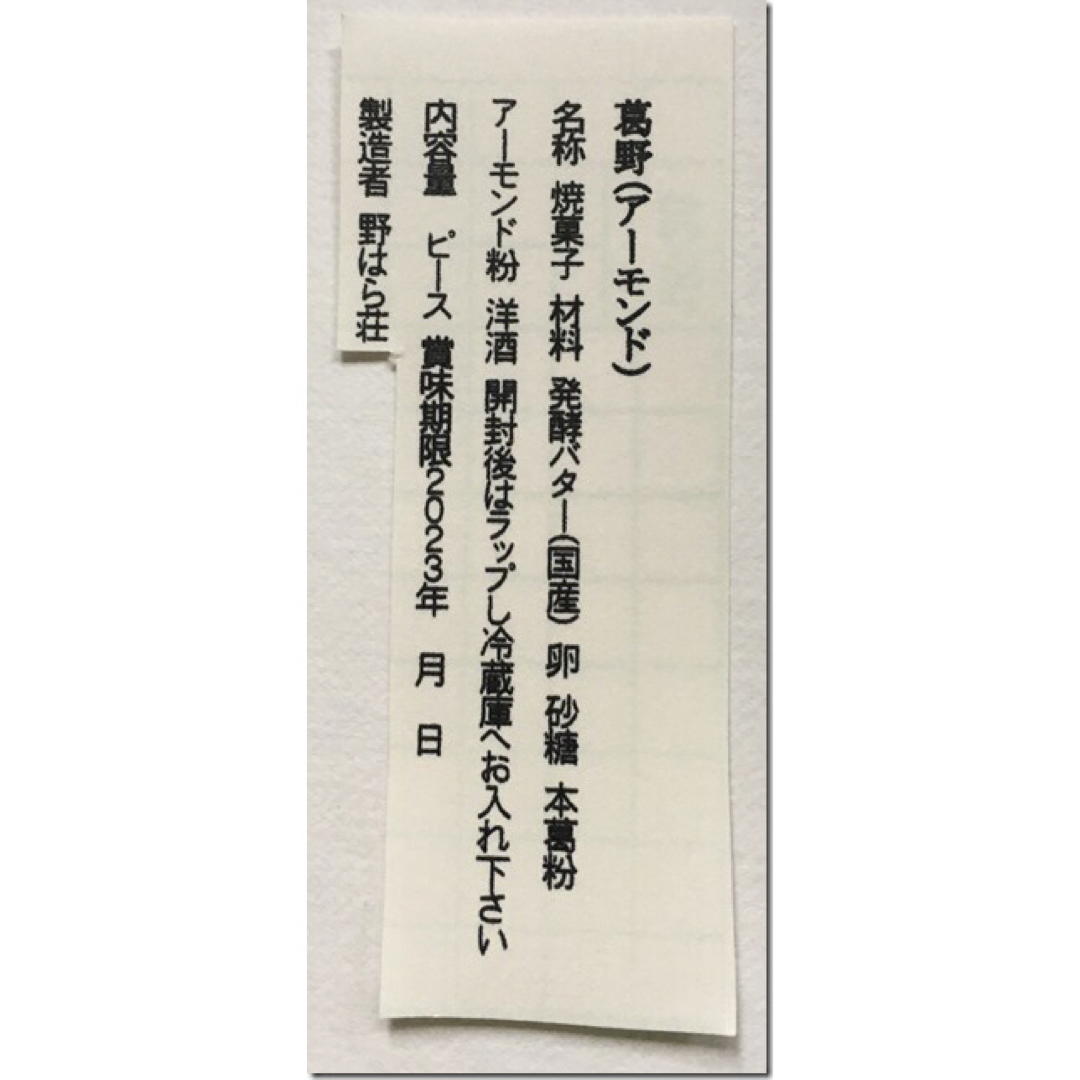 葛野(アーモンド)
名称 焼菓子 材料 発酵バター(国産) 卵 砂糖 本葛粉
アーモンド粉 洋酒 開封後はラップし冷蔵庫へお入れ下さい
内容量 ピース 賞味期限2023年 月 日
製造者 野はら荘